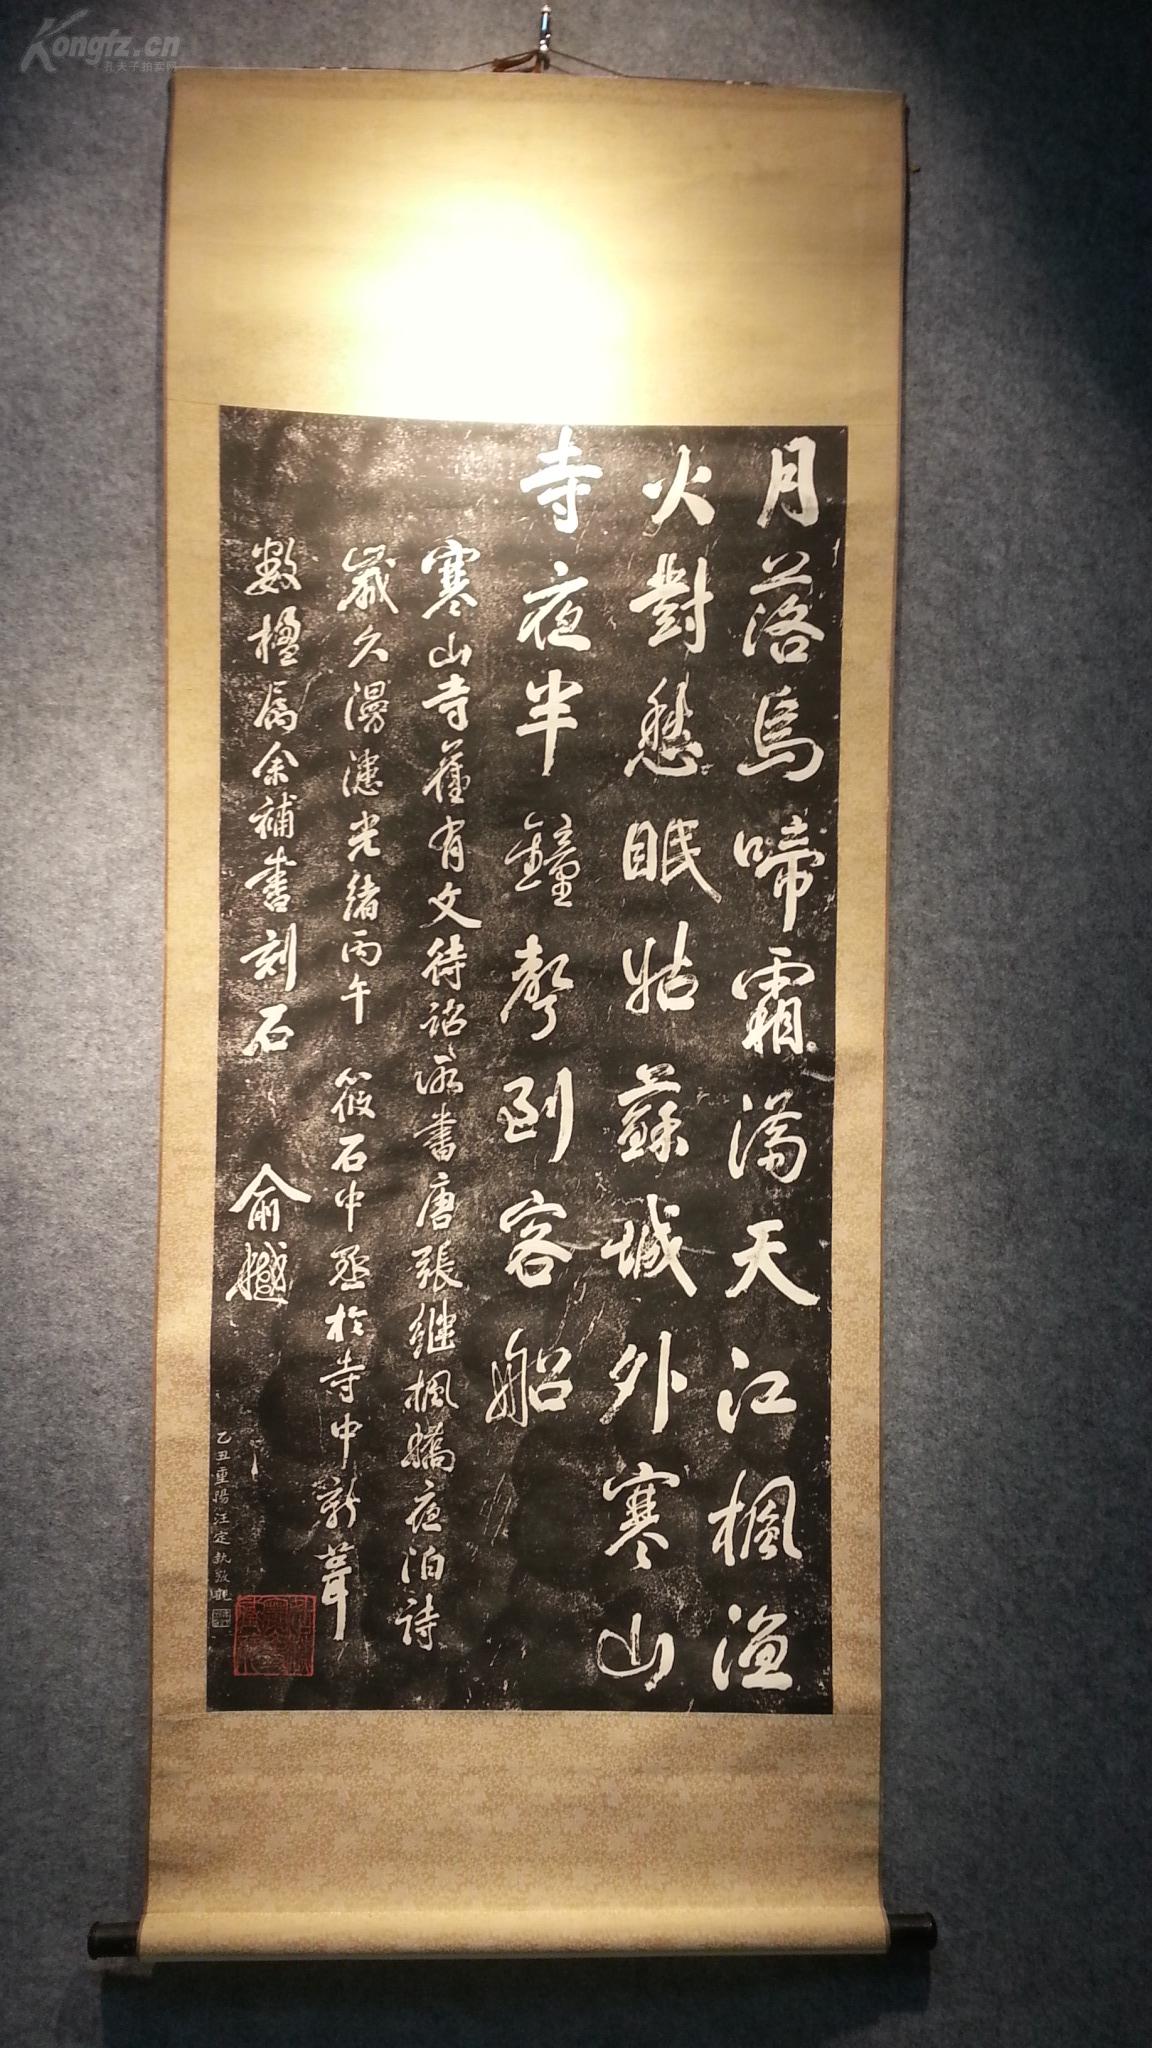 Kongfz.cn
孔夫子拍卖网
月落烏啼霜滿天江楓漁
火對愁眠姑蘇城外寒山
寺夜半鐘聲到客船
寒山寺舊有文待詔所書唐張繼楓橋夜泊詩
歲久漫漶光緒丙午 筱石中丞於寺中新葺
數楹屬余補書刻石 俞樾
乙丑重陽汪定執敬觀